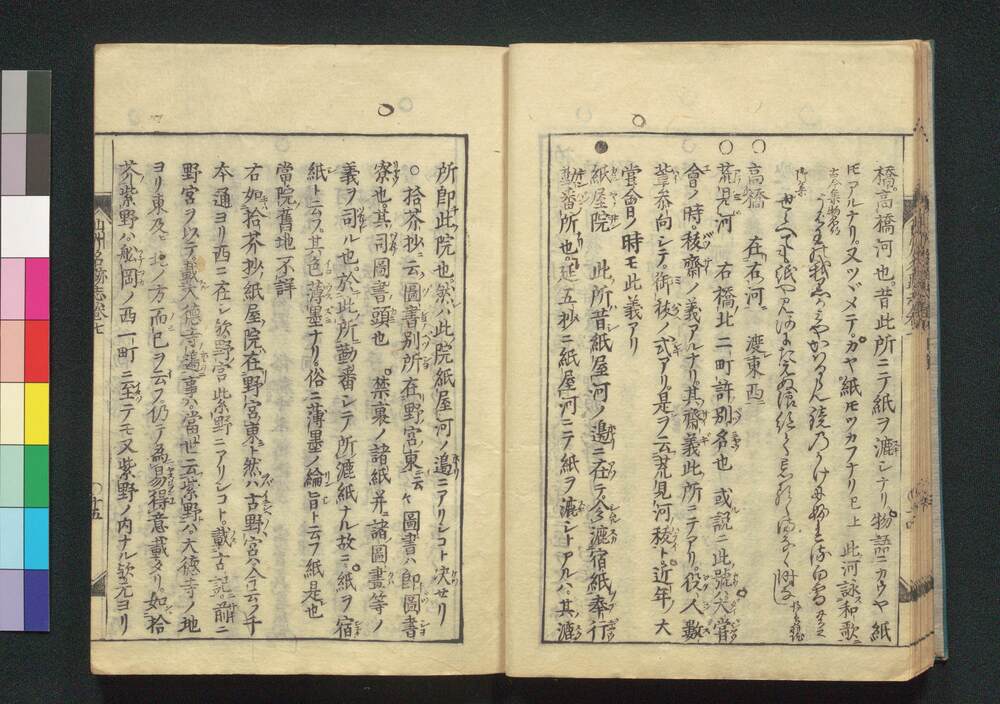 橋高橋河也昔此所ニテ紙ヲ漉シナリ物語ニカウヤ紙
モアルナリ又ツヾメテカヤ紙モツカフナリ已上 此河詠和歌ニ
古今集物名
高橋 在右河 渡東西ニ
荒見河 右橋北二町許別名也 或説ニ此號大甞
會ノ時秡齋ノ義アルナリ其齋義此所ニテアリ役人數
輩参向シテ御秡ノ式アリ是ヲ云荒見河秡ト近年ノ大
甞會ノ時モ此義アリ
紙屋院 此所昔紙屋河ノ邉ニ在テ令漉宿紙奉行
勤番所也延五抄ニ紙屋河ニテ紙ヲ漉シトアルハ其漉
所即此院也然ハ此院紙屋河ノ邉ニアリシコト决セリ
○拾芥抄ニ云圖書別所在野宮東ニ云々圖書ハ即圖書
寮也其司圖書頭也 禁裏ノ諸紙并ニ諸圖書等ノ
義ヲ司ル也於此所勤番シテ所漉紙ナル故ニ紙ヲ宿
紙ト云フ其色薄墨ナリ俗ニ薄墨ノ綸旨ト云フ紙是也
當院舊地不詳
右如拾芥抄紙屋院在野宮東ト然ハ古野宮ハ今云ノ千
本通ヨリ西ニ在シ歟野宮此紫野ニアリシコト載古記前ニ
野宮ヲ以テ載大德寺邉事ハ當世云紫野ハ大德寺ノ地
ヨリ東及ヒ北ノ方而已ヲ云フ仍テ為易得意載タリ如拾
芥紫野ハ舩岡ノ西一町ニ至テモ又紫野ノ内ナル歟元ヨリ
山州名跡志巻七
○十五